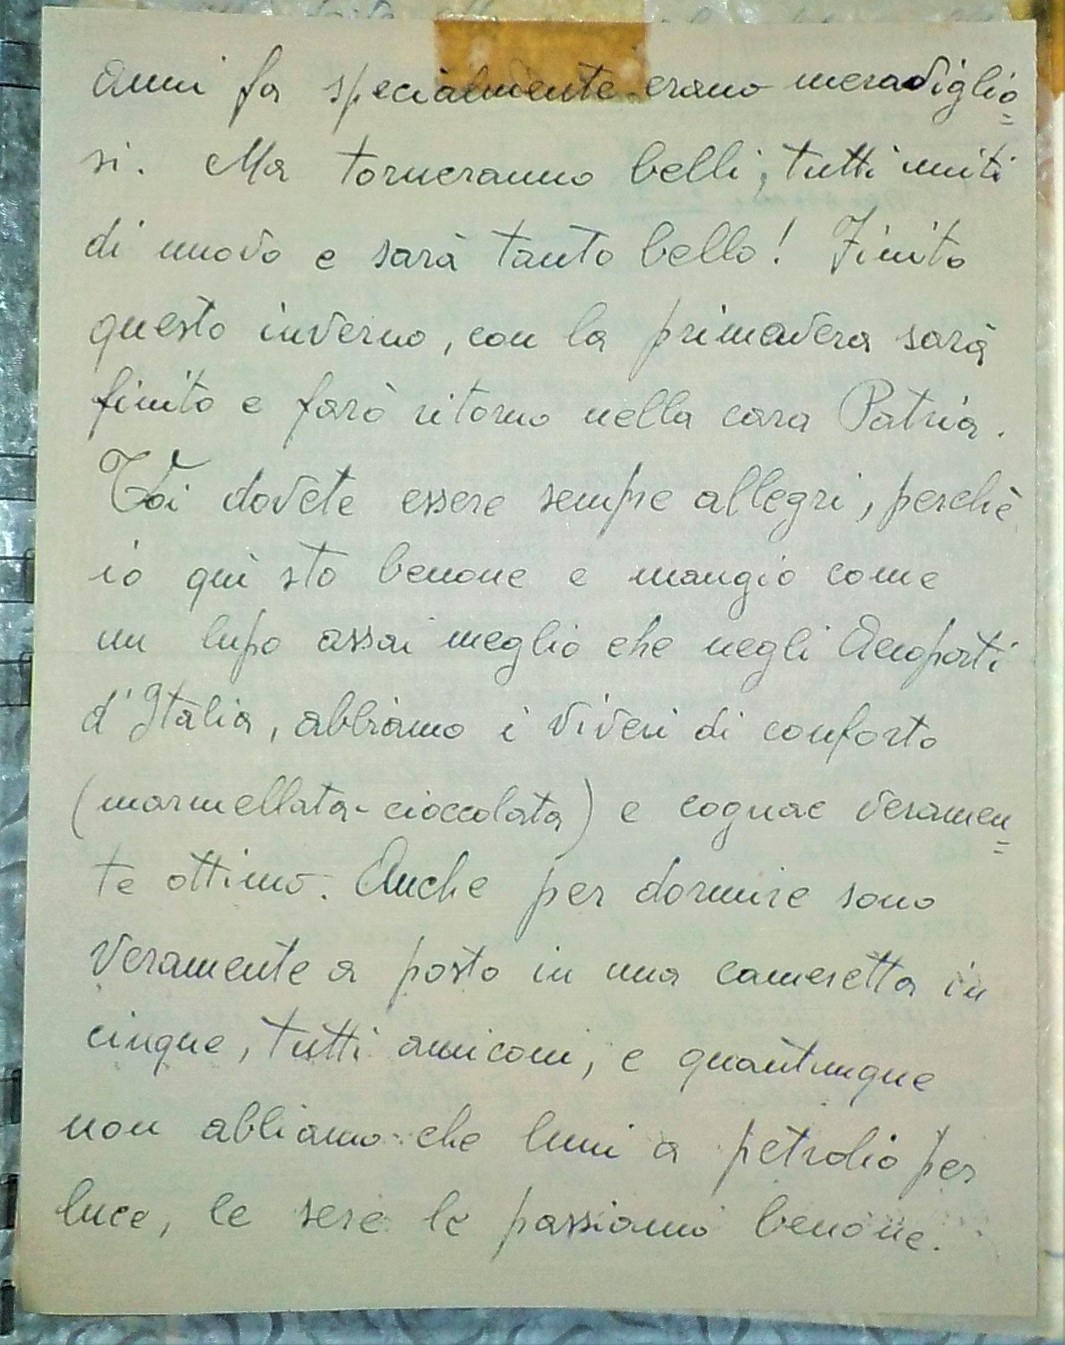 anni fa specialmente erano meraviglio=
si. Ma torneranno belli, tutti uniti
di nuovo e sarà tanto bello! Finito
questo inverno, con la primavera sarà
finito e farò ritorno nella cara Patria.
Voi dovete essere sempre allegri, perchè
io quì sto benone e mangio come
un lupo assai meglio che negli Aeroporti
d'Italia, abbiamo i viveri di conforto
(marmellata-cioccolata) e cognac veramen=
te ottimo. Anche per dormire sono
veramente a posto in una cameretta in
cinque, tutti amiconi, e quantunque
non abbiamo che lumi a petrolio per
luce, le sere le passiamo benone.